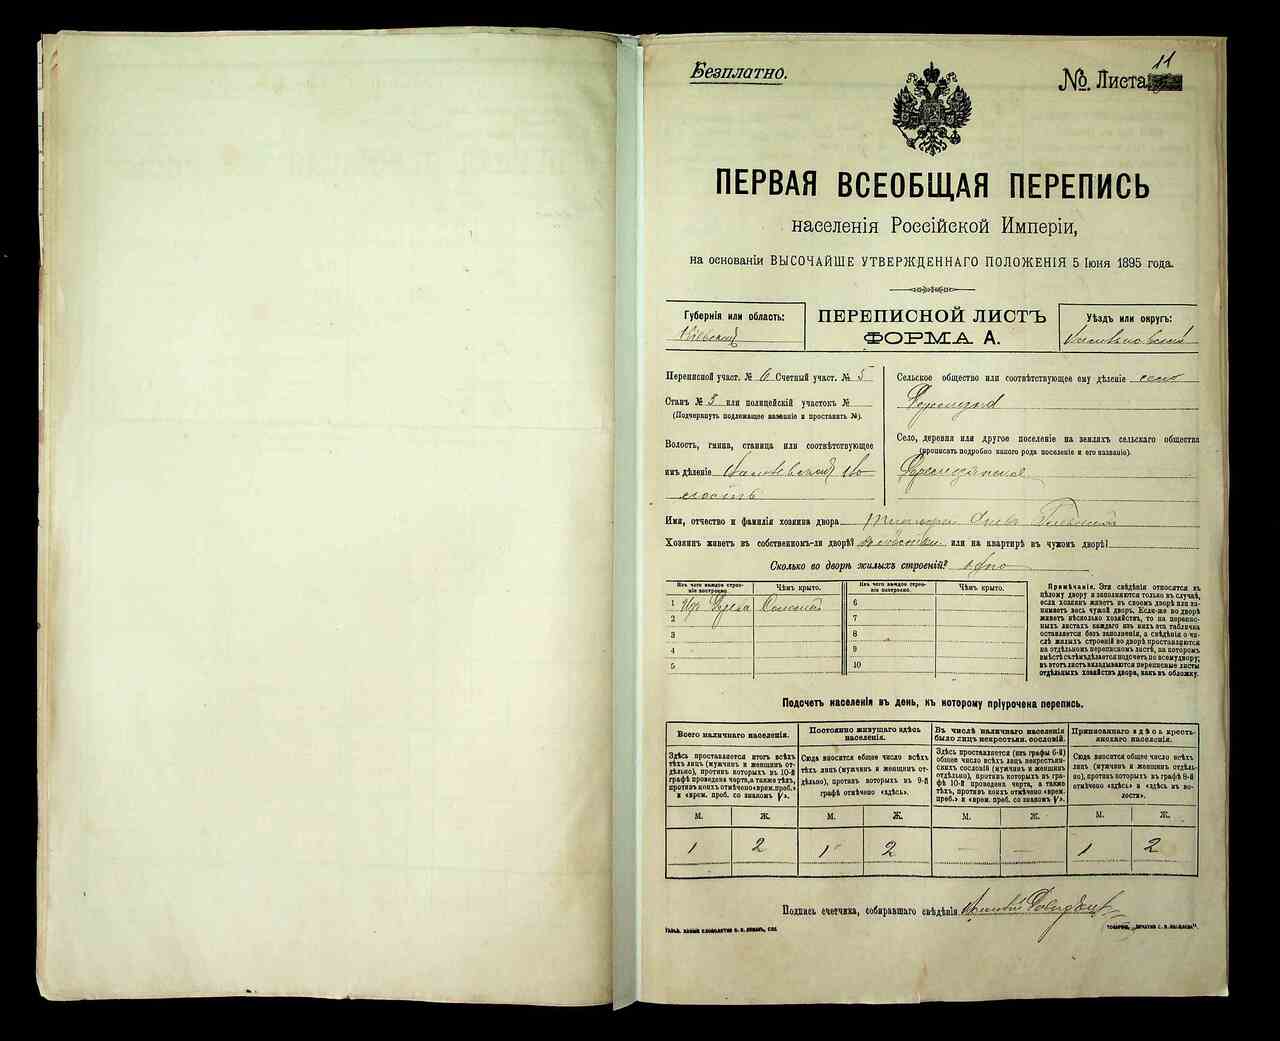 Безплатно.
№ Листа 11
ПЕРВАЯ ВСЕОБЩАЯ ПЕРЕПИСЬ
населенія Россійской Имперіи,
на основаніи ВЫСОЧАЙШЕ УТВЕРЖДЕННАГО ПОЛОЖЕНІЯ 5 Іюня 1895 года.
Губернія или область:
Кіевская
ПЕРЕПИСНОЙ ЛИСТЪ
ФОРМА А.
Уѣздъ или округъ:
Переписной участ. № 6 Счетный участ. № 5
Станъ № 3 или полицейскій участокъ №
(Подчеркнуть подлежащее названіе и проставить №).
Волость, гмина, станица или соотвѣтствующее
имъ дѣленіе
Сельское общество или соотвѣтствующее ему дѣленіе село
Село, деревня или другое поселеніе на земляхъ сельскаго общества
(прописать подробно какого рода поселеніе и его названіе).
Имя, отчество и фамилія хозяина двора
Хозяинъ живетъ въ собственномъ-ли дворѣ? или на квартирѣ въ чужомъ дворѣ?
Сколько во дворѣ жилыхъ строеній? одно
Изъ чего каждое строеніе построено.
Чѣмъ крыто.
Изъ чего каждое строеніе построено.
Чѣмъ крыто.
1 Изъ Соломой 6
2 7
3 8
4 9
5 10
Примѣчаніе. Эти свѣдѣнія относятся къ
цѣлому двору и заполняются только въ случаѣ,
если хозяинъ живетъ въ своемъ дворѣ или занимаетъ
весь чужой дворъ. Если-же во дворѣ
живетъ нѣсколько хозяйствъ, то на переписныхъ
листахъ каждаго изъ нихъ эта табличка
оставляется безъ заполненія, а свѣдѣнія о числѣ
жилыхъ строеній во дворѣ проставляются
на отдѣльномъ переписномъ листѣ, на которомъ
вмѣстѣ съ тѣмъ дѣлается подсчетъ по всему двору;
въ этотъ листъ вкладываются переписные листы
отдѣльныхъ хозяйствъ двора, какъ въ обложку.
Подсчетъ населенія въ день, къ которому пріурочена перепись.
Всего наличнаго населенія.
Здѣсь проставляется итогъ всѣхъ
тѣхъ лицъ (мужчинъ и женщинъ отдѣльно),
противъ которыхъ въ 10-й
графѣ проведена черта, а также тѣхъ,
противъ коихъ отмѣчено «врем. преб.»
и «врем. преб. со знакомъ V».
Постоянно живущаго здѣсь населенія.
Сюда вносится общее число всѣхъ
тѣхъ лицъ (мужчинъ и женщинъ отдѣльно),
противъ которыхъ въ 9-й
графѣ отмѣчено «здѣсь».
Въ числѣ наличнаго населенія
было лицъ некрестьян. сословій.
Здѣсь проставляется (изъ графы 6-й)
общее число всѣхъ лицъ некрестьянскихъ
сословій (мужчинъ и женщинъ
отдѣльно), противъ которыхъ въ графѣ
10-й проведена черта, а также
тѣхъ, противъ коихъ отмѣчено «врем.
преб.» и «врем. преб. со знакомъ V».
Приписаннаго здѣсь крестьянскаго населенія.
Сюда вносится общее число всѣхъ
тѣхъ лицъ (мужчинъ и женщинъ отдѣльно),
противъ которыхъ въ графѣ 8-й
отмѣчено «здѣсь» и «здѣсь въ волости».
М. Ж. М. Ж. М. Ж. М. Ж.
1 2 1 2 — — 1 2
Подпись счетчика, собиравшаго свѣдѣнія